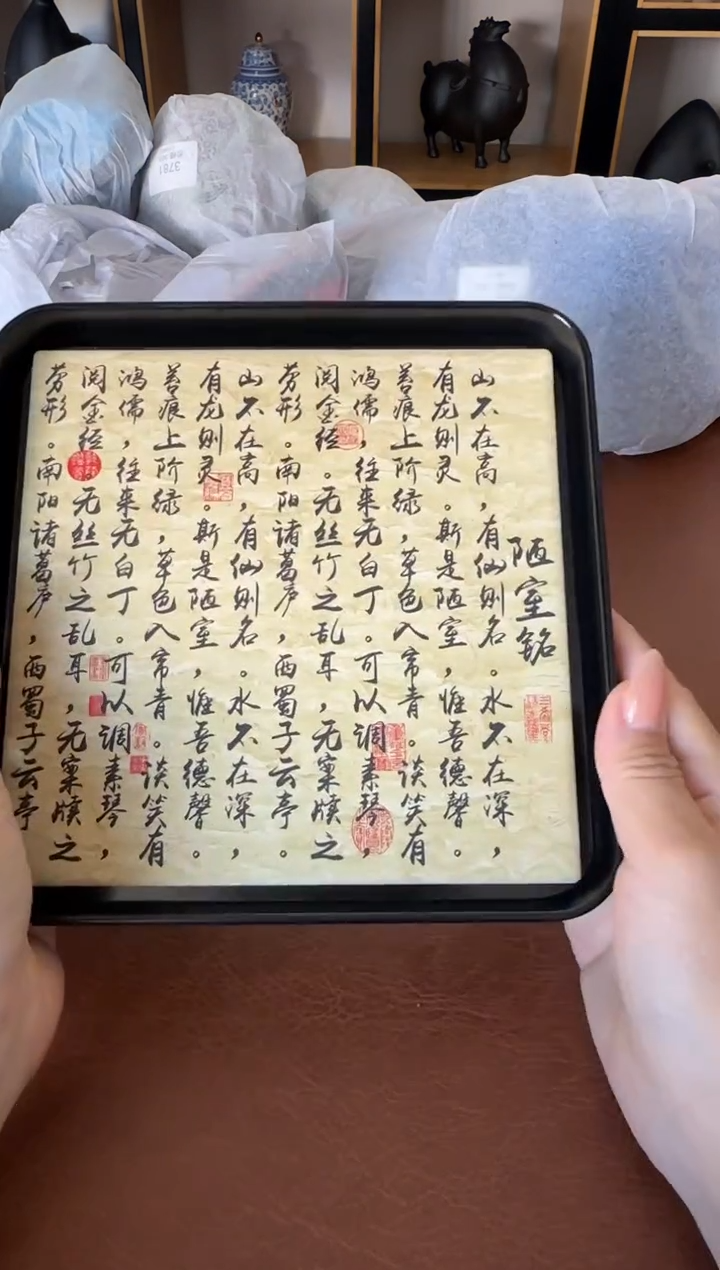 陋室铭
山不在高，有仙则名。水不在深，
有龙则灵。斯是陋室，惟吾德馨。
苔痕上阶绿，草色入帘青。谈笑有
鸿儒，往来无白丁。可以调素琴，
阅金经。无丝竹之乱耳，无案牍之
劳形。南阳诸葛庐，西蜀子云亭。
山不在高，有仙则名。水不在深，
有龙则灵。斯是陋室，惟吾德馨。
苔痕上阶绿，草色入帘青。谈笑有
鸿儒，往来无白丁。可以调素琴，
阅金经。无丝竹之乱耳，无案牍之
劳形。南阳诸葛庐，西蜀子云亭
3781